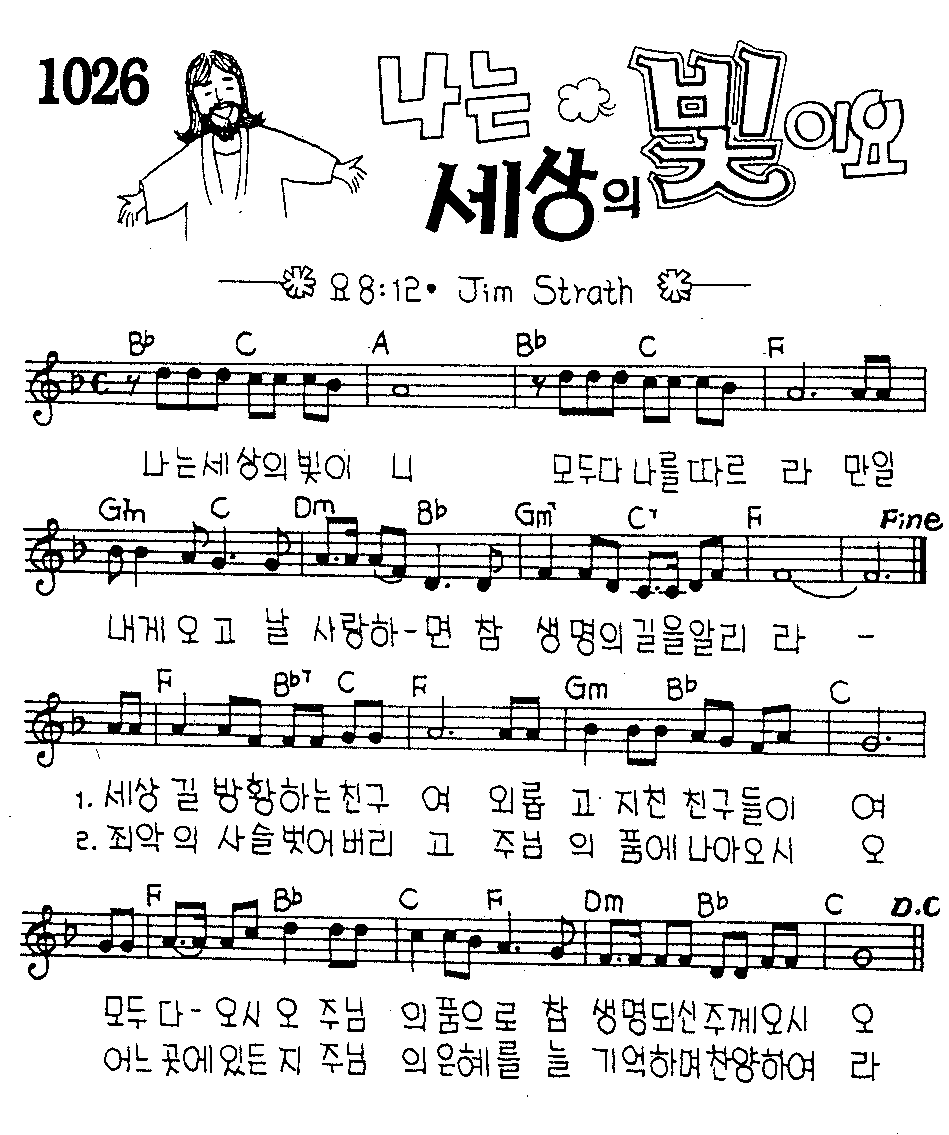 1026
나는
세상의 빛이요
요 8:12 • Jim Strath
B♭ C A B♭ C F
나는세상의빛이 니 모두다나를따르 라 만일
Gm C Dm B♭ Gm7 C7 F Fine
내게오고 날 사랑하-면 참 생명의길을알리 라 -
F B♭7 C F Gm B♭ C
1. 세상 길 방황하는친구 여 외롭 고 지친 친구들이 여
2. 죄악의 사슬벗어버리 고 주님 의 품에나아오시 오
F B♭ C F Dm B♭ C D.C
모두다-오시 오 주님 의품으로 참 생명되신주께오시 오
어느곳에있든 지 주님 의은혜를 늘 기억하며찬양하여 라